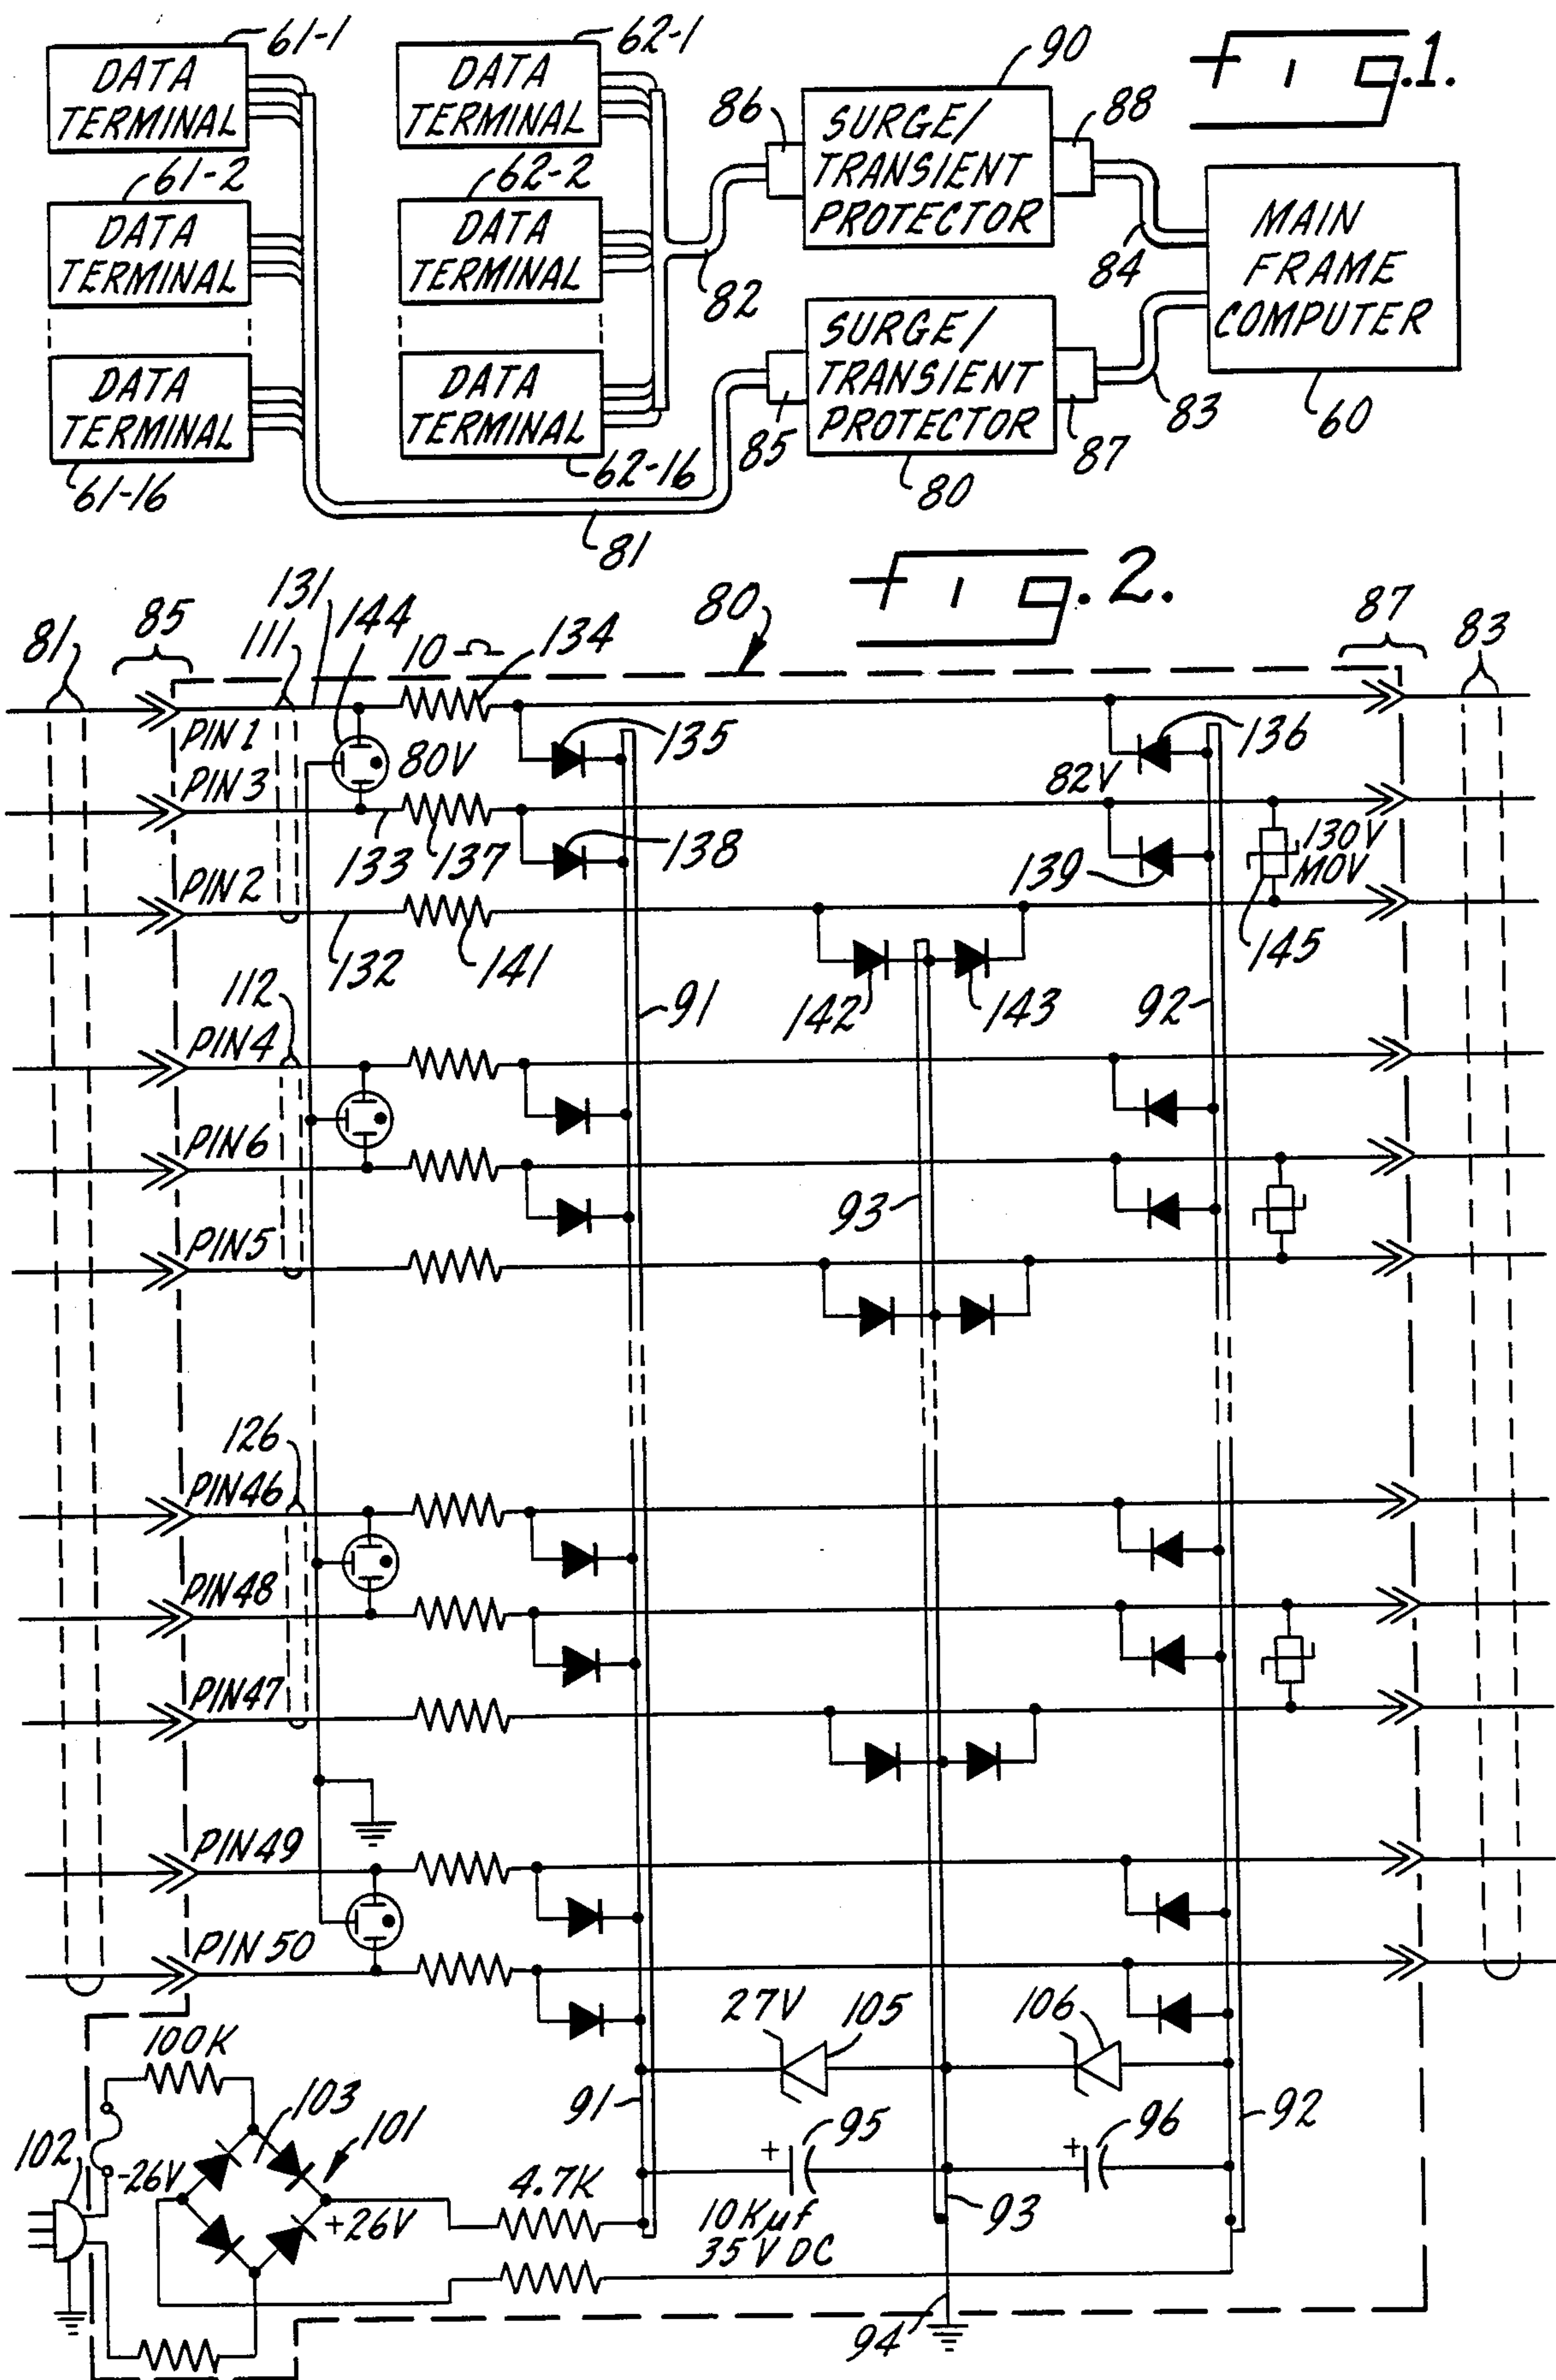 fig.1.
61-1
DATA
TERMINAL
61-2
DATA
TERMINAL
DATA
TERMINAL
61-16
62-1
DATA
TERMINAL
62-2
DATA
TERMINAL
DATA
TERMINAL
62-16
81
82
86
90
SURGE/
TRANSIENT
PROTECTOR
88
84
85
SURGE/
TRANSIENT
PROTECTOR
80
87
83
MAIN
FRAME
COMPUTER
60
fig.2.
81
85
111
131
144
10 Ω
134
80
87
83
PIN 1
80V
135
136
PIN 3
133
137
138
82V
139
130V
MOV
PIN 2
132
141
142
143
145
112
91
92
PIN 4
PIN 6
93
PIN 5
126
PIN 46
PIN 48
PIN 47
PIN 49
PIN 50
27V
105
106
100K
103
101
102
-26V
+26V
4.7K
91
+
95
+
96
92
10Kµf
35 V DC
93
94